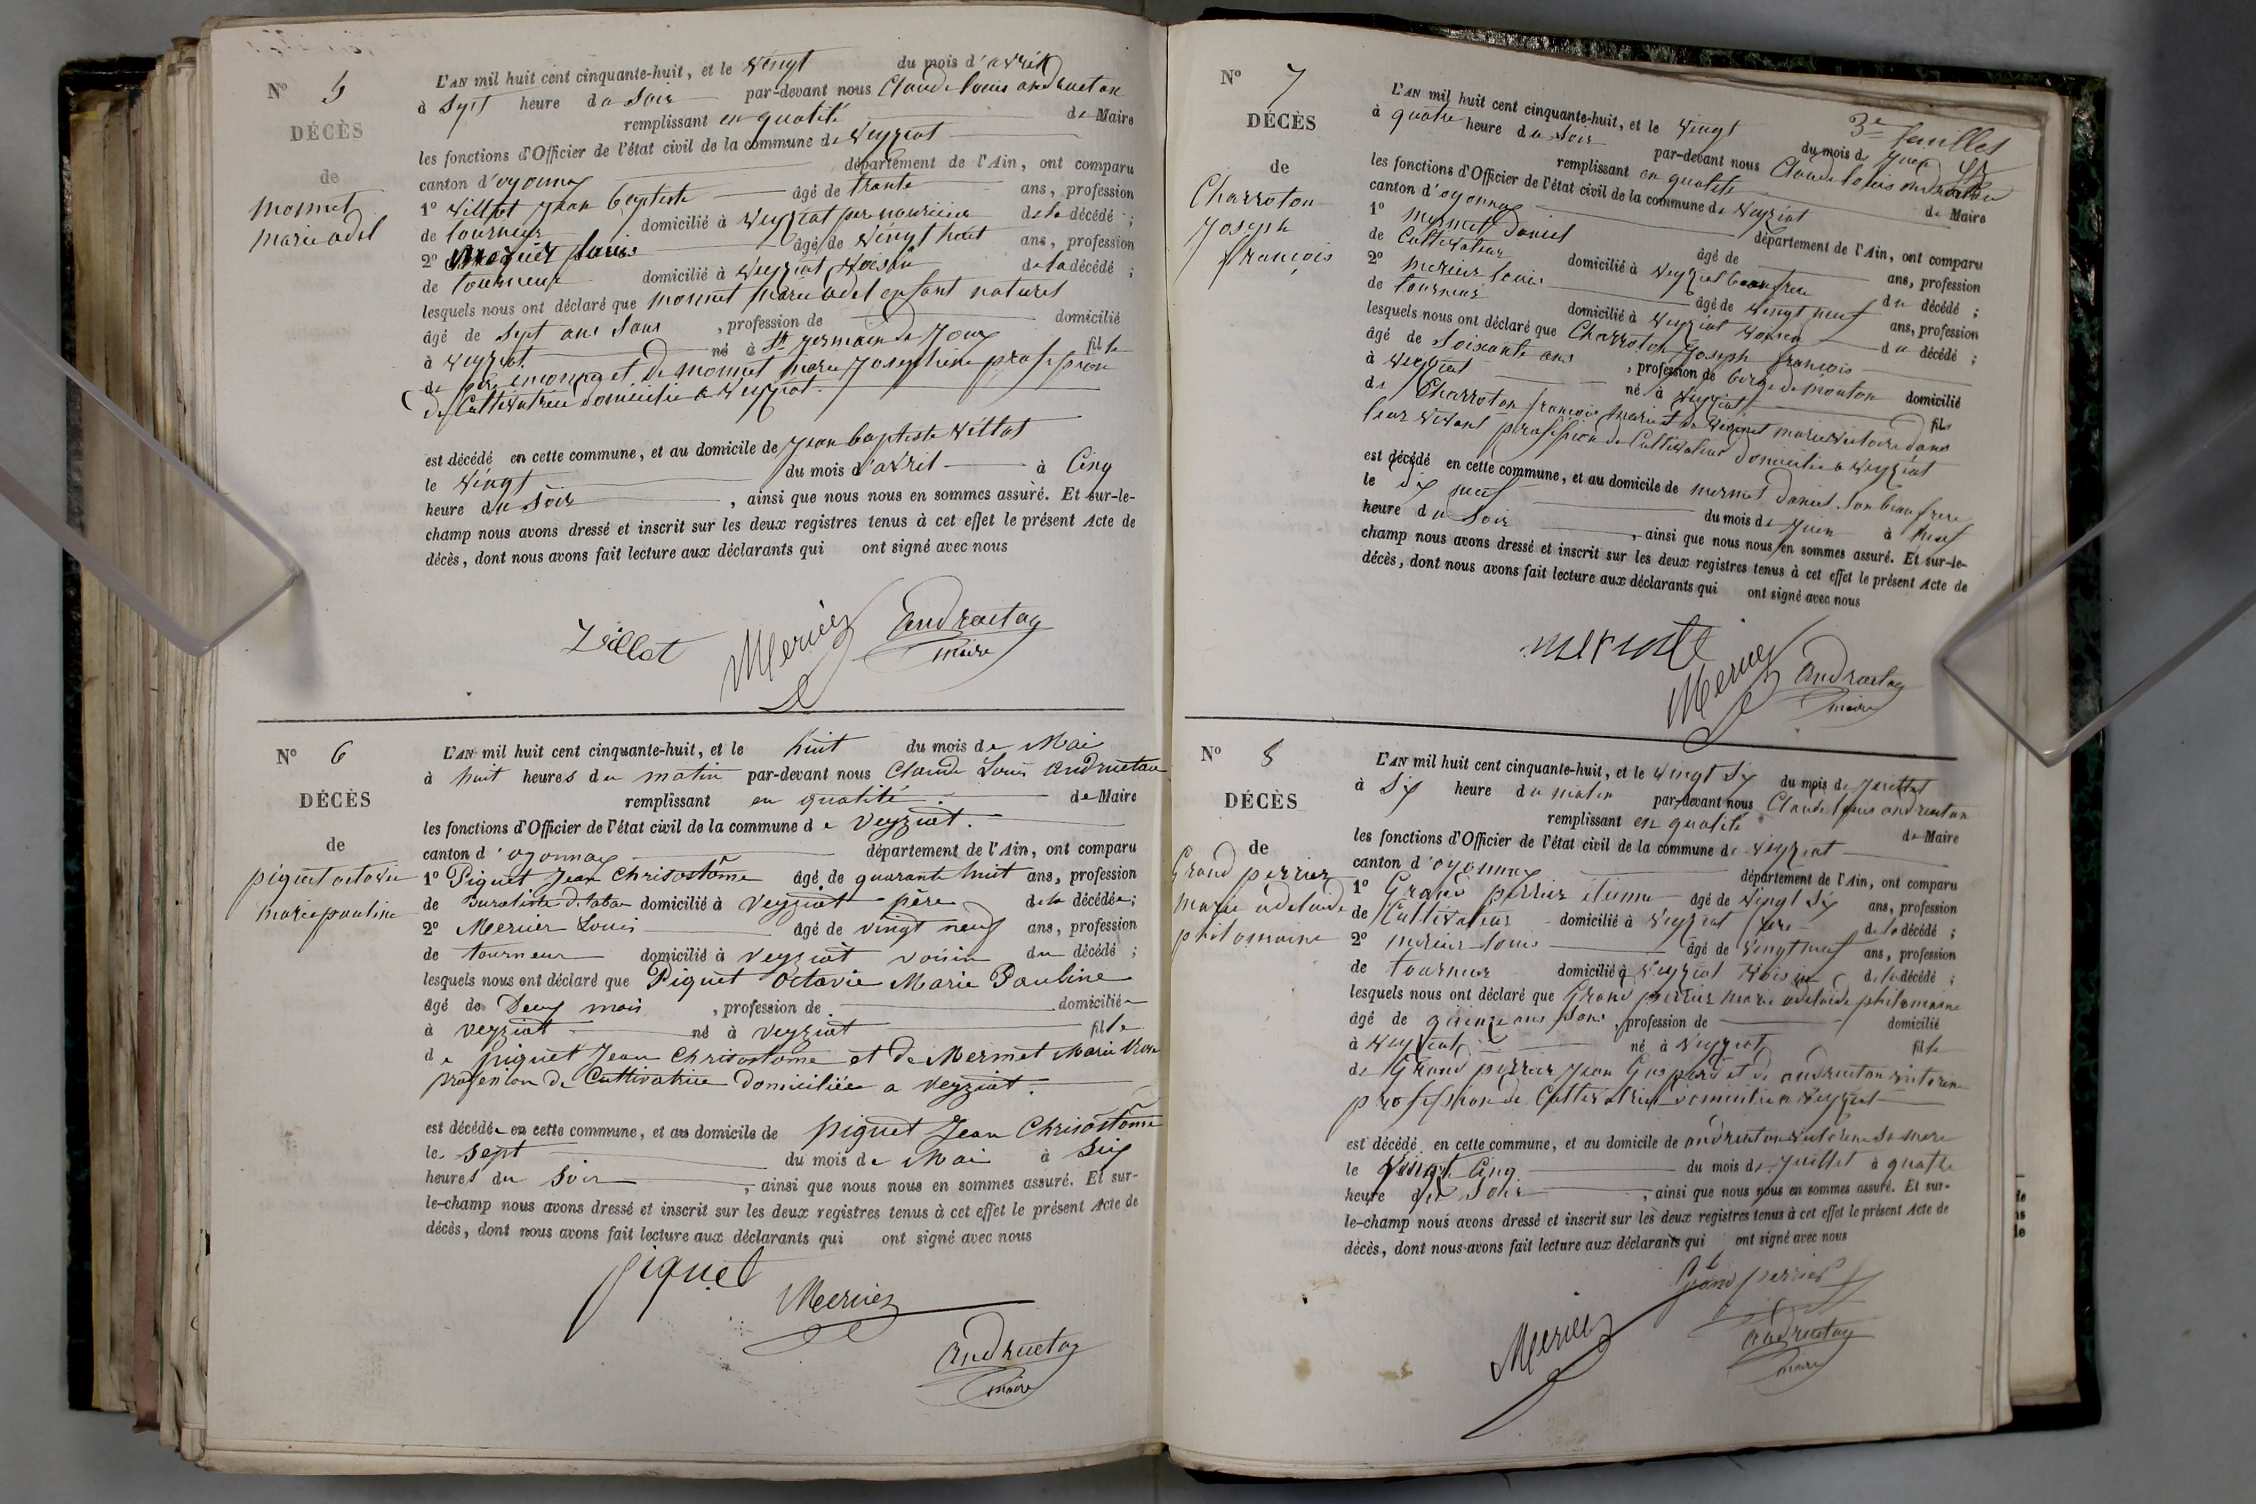 N° 5
DÉCÈS
de
Monnet
Marie adel
L'AN mil huit cent cinquante-huit, et le vingt du mois d'avril
à sept heure du soir par-devant nous Claude louis andrueton
remplissant en qualité de Maire
les fonctions d'Officier de l'état civil de la commune de Veyziat
canton d'oyonnax département de l'Ain, ont comparu
1° Villot Jean baptiste âgé de trante ans, profession
de tourneur domicilié à Veyziat pere nouricier de la décédé ;
2° Mercier louis âgé de vingt huit ans, profession
de tourneur domicilié à Veyziat Voisin de la décédé ;
lesquels nous ont déclaré que monnet marie adel enfant naturel
âgé de sept ans sans , profession de domicilié
à Veyziat né à St germain de Joux fille
de père inconnu et de monnet marie Josephine profession
de Cultivatrice domicilié a Veyziat
est décédé en cette commune, et au domicile de Jean baptiste Villot
le vingt du mois d'avril à Cinq
heure du soir , ainsi que nous nous en sommes assuré. Et sur-le-
champ nous avons dressé et inscrit sur les deux registres tenus à cet effet le présent Acte de
décès, dont nous avons fait lecture aux déclarants qui ont signé avec nous
Villot Mercier andrueton
maire
N° 6
DÉCÈS
de
piquet octavie
marie pauline
L'AN mil huit cent cinquante-huit, et le huit du mois de Mai
à huit heures du matin par-devant nous Claude Louis andrueton
remplissant en qualité de Maire
les fonctions d'Officier de l'état civil de la commune de Veyziat.
canton d'oyonnax département de l'Ain, ont comparu
1° Piquet Jean Chrisostôme âgé de quarante huit ans, profession
de Buraliste de tabac domicilié à Veyziat père de la décédée ;
2° Mercier Louis âgé de vingt neuf ans, profession
de tourneur domicilié à Veyziat voisin du décédé ;
lesquels nous ont déclaré que Piquet Octavie Marie Pauline
âgé de Deux mois , profession de domiciliée
à Veyziat né à Veyziat fille
de piquet Jean Chrisostome et de Mermet Marie Rose
profession de Cultivatrice Domiciliée a Veyziat.
est décédée en cette commune, et au domicile de piquet Jean Chrisostôme
le sept du mois de Mai à Six
heures du soir , ainsi que nous nous en sommes assuré. Et sur-
le-champ nous avons dressé et inscrit sur les deux registres tenus à cet effet le présent Acte de
décès, dont nous avons fait lecture aux déclarants qui ont signé avec nous
piquet
Mercier
andrueton
maire
3e feuillet
N° 7
DÉCÈS
de
Charroton
Joseph
françois
L'AN mil huit cent cinquante-huit, et le vingt du mois de Juin
à quatre heure du soir par-devant nous Claude louis andrueton
remplissant en qualité de Maire
les fonctions d'Officier de l'état civil de la commune de Veyziat
canton d'oyonnax département de l'Ain, ont comparu
1° mermet Daniel âgé de ans, profession
de Cultivateur domicilié à Veyziat beaufrere du décédé ;
2° mercier louis âgé de vingt neuf ans, profession
de tourneur domicilié à Veyziat Voisin du décédé ;
lesquels nous ont déclaré que Charroton Joseph françois
âgé de soixante ans , profession de berge de mouton domicilié
à Veyziat né à Veyziat fils
de Charroton françois marie et de marie Victoire dans
leur vivant profession de Cultivateur domicilié a Veyziat
est décédé en cette commune, et au domicile de mermet Daniel son beaufrere
le dix neuf du mois de Juin à neuf
heure du soir , ainsi que nous nous en sommes assuré. Et sur-le-
champ nous avons dressé et inscrit sur les deux registres tenus à cet effet le présent Acte de
décès, dont nous avons fait lecture aux déclarants qui ont signé avec nous
Mercier andrueton
maire
N° 8
DÉCÈS
de
Grand perrier
marie adelaide
philomaine
L'AN mil huit cent cinquante-huit, et le vingt six du mois de Juillet
à six heure du matin par-devant nous Claude louis andrueton
remplissant en qualité de Maire
les fonctions d'Officier de l'état civil de la commune de Veyziat
canton d'oyonnax département de l'Ain, ont comparu
1° Grand perrier étienne âgé de vingt six ans, profession
de Cultivateur domicilié à Veyziat frere de la décédé ;
2° mercier louis âgé de vingt neuf ans, profession
de tourneur domicilié à Veyziat Voisin de la décédé ;
lesquels nous ont déclaré que Grand perrier marie adelaide philomaine
âgé de quinze ans sans , profession de domicilié
à Veyziat né à Veyziat fille
de Grand perrier Jean Gaspard et de andrueton
profession de Cultivatrice domicilié a Veyziat
est décédé en cette commune, et au domicile de andrueton sa mere
le vingt Cinq du mois de Juillet à quatre
heure du soir , ainsi que nous nous en sommes assuré. Et sur-
le-champ nous avons dressé et inscrit sur les deux registres tenus à cet effet le présent Acte de
décès, dont nous avons fait lecture aux déclarants qui ont signé avec nous
grand perrier
Mercier andrueton
maire